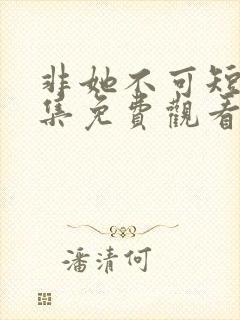 非她不可短
集免費觀看
潘清何